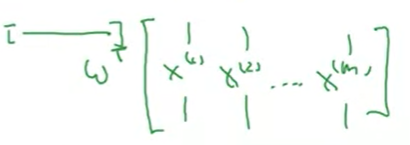 [ —— ] [ | | | ]
ω^T x^(1) x^(2) .... x^(m)
| | |